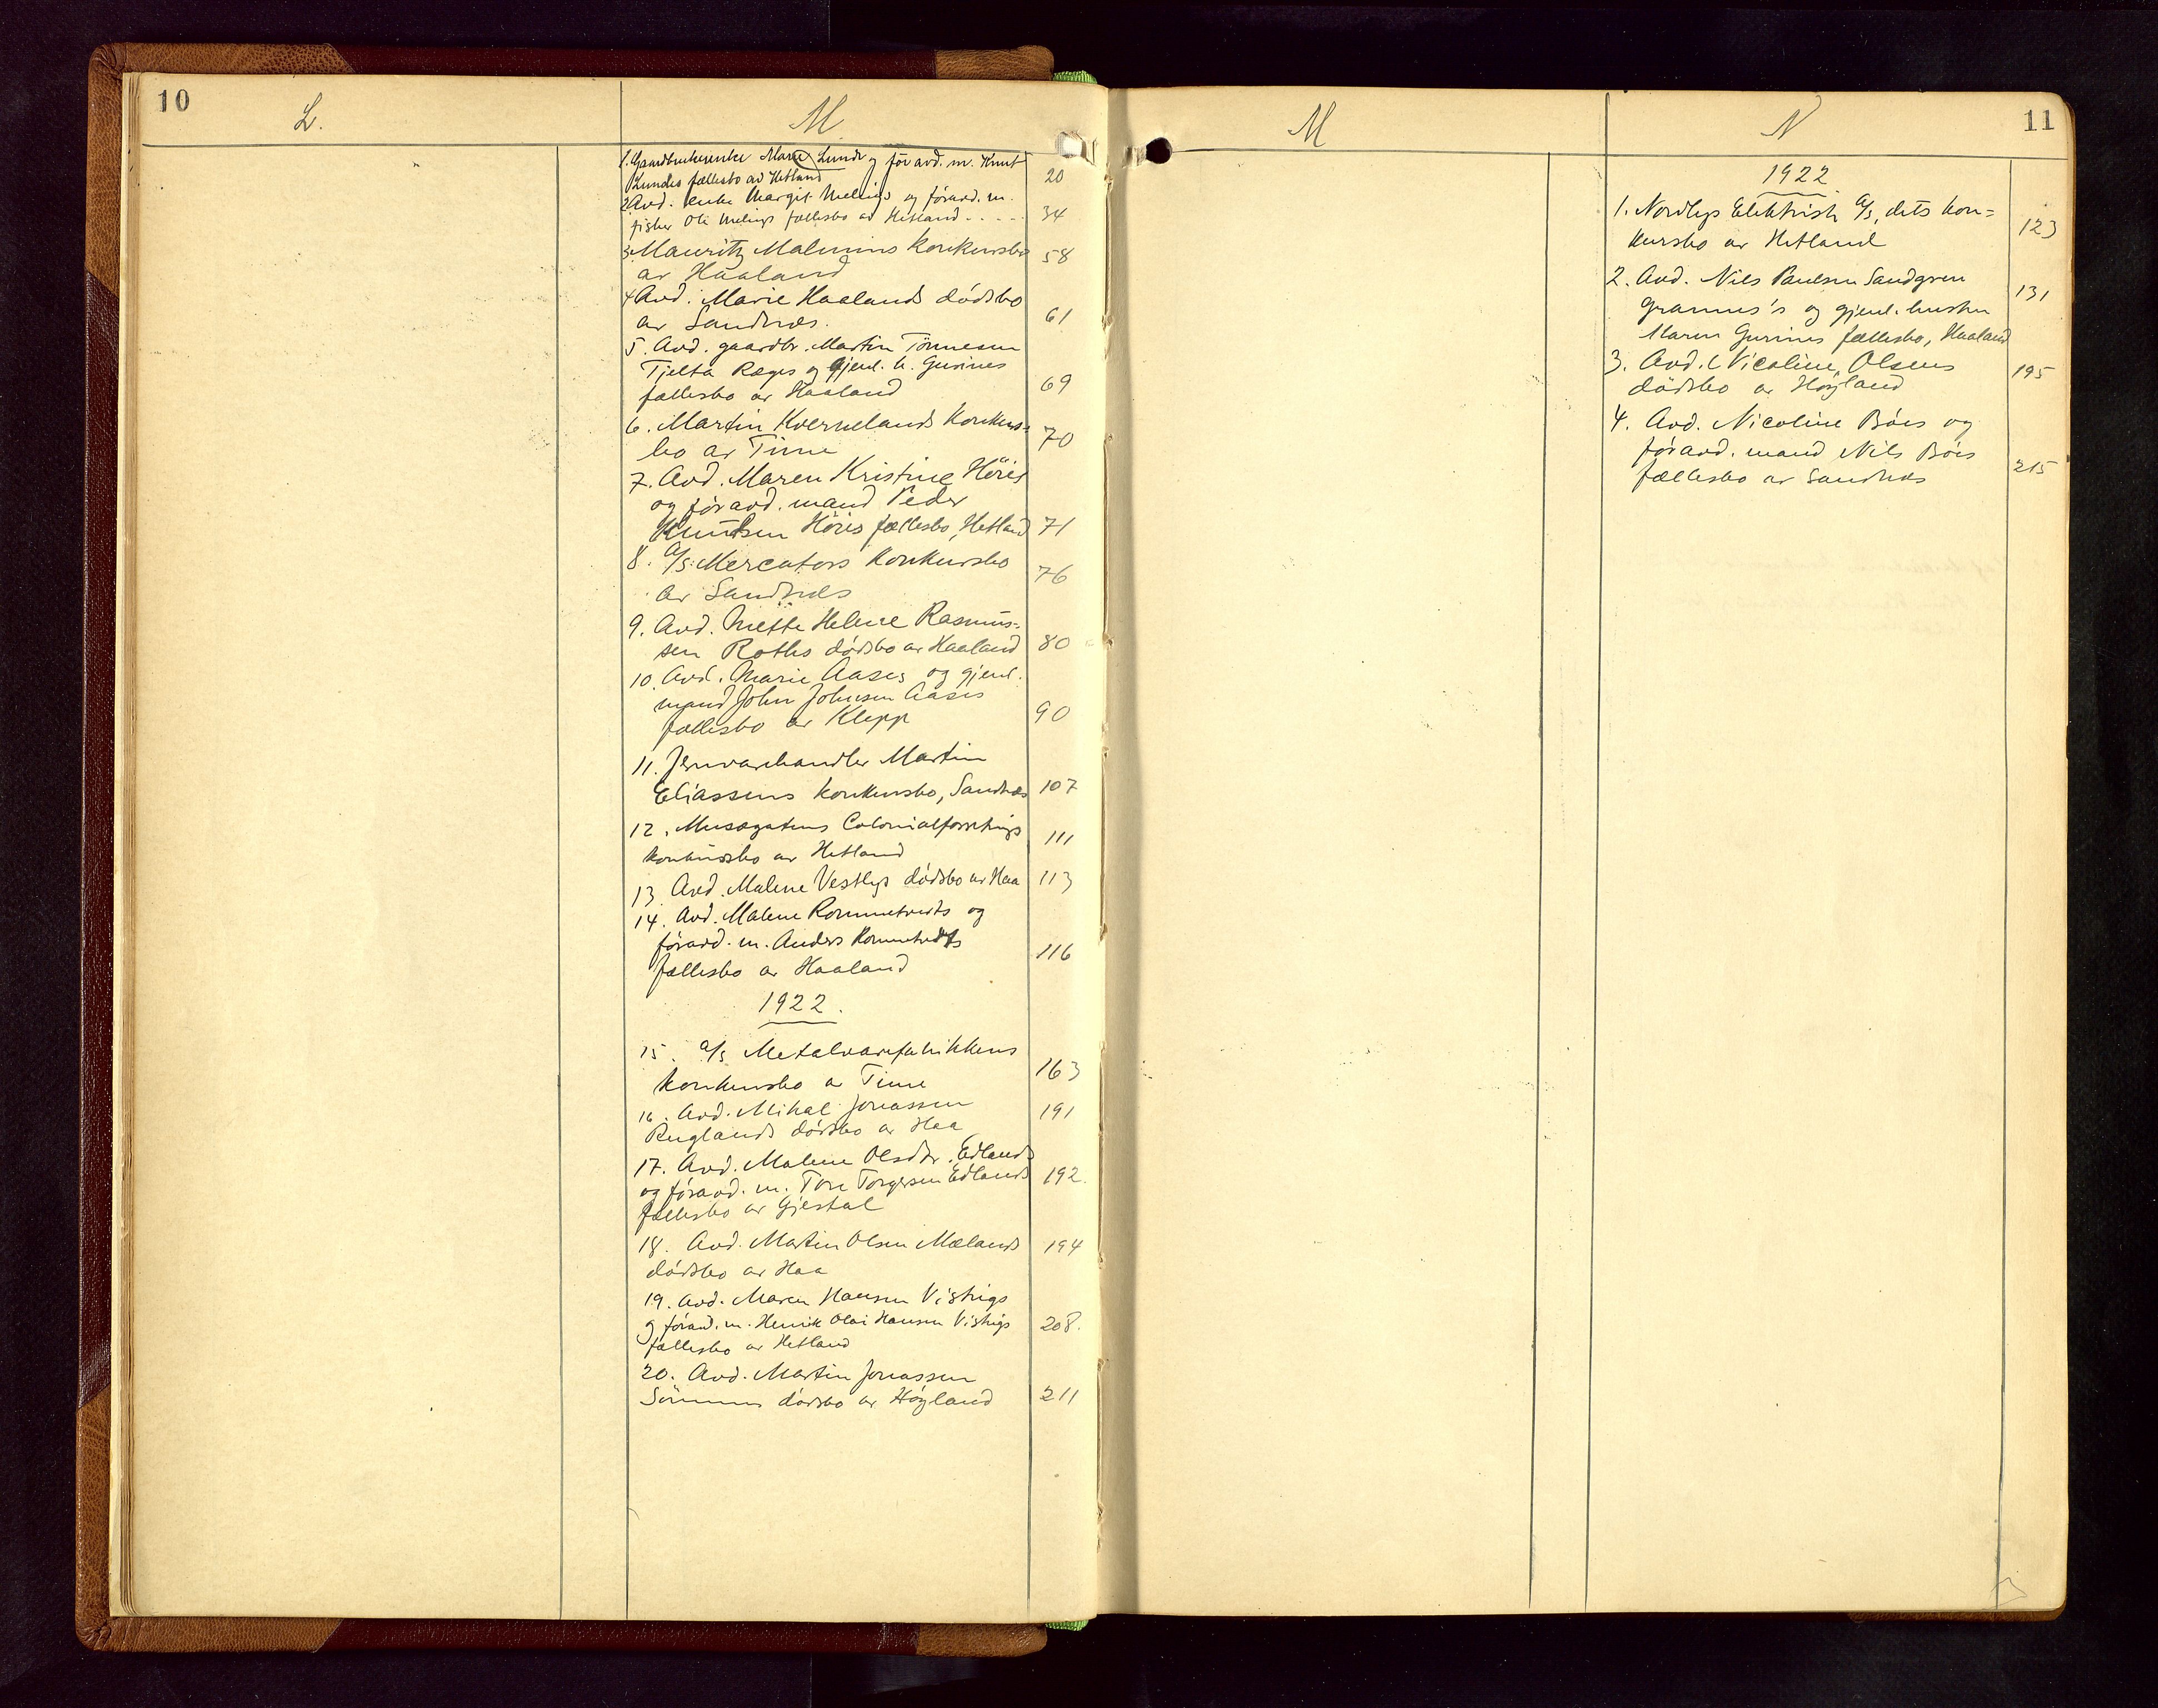 10
L.
M
1. Gaardbrukerenke Marie Lunde og før avd. m. Knut
Lundes fællesbo av Hetland
20
2 Avd. enke Margit Melings og føravd. m.
fisker Ole Melings fællesbo av Hetland . . . .
34
3. Mauritz Malmins konkursbo
av Haaland
58
4 Avd. Marie Haalands dødsbo
av Sandnes.
61
5. Avd. gaardbr. Martin Tønnesen
Tjelta Ræges og gjenl. h. Gurines
fællesbo av Haaland
69
6. Martin Kvernelands konkurs=
bo av Time
70
7. Avd. Maren Kristine Høies
og føravd. mand Peder
Knutsen Høies fællesbo, Hetland
71
8. A/S. Mercators konkursbo
av Sandnes
76
9. Avd. Mette Helene Rasmus=
sen Roths dødsbo av Haaland
80
10. Avd. Marie Aases og gjenl.
mand John Johnsen Aases
fællesbo av Klepp
90
11. Jernvarehandler Martin
Eliassens konkursbo, Sandnes
107
12. Musægatens Colonialforretnings
konkursbo av Hetland
111
13. Avd. Malene Vestlys dødsbo av Haa
113
14. Avd. Malene Rommetvedts og
føravd. m. Anders Rommetvedts
fællesbo av Haaland
116
1922.
15. A/S Metalvarefabrikkens
konkursbo av Time
163
16. Avd. Mikal Jonassen
Ruglands dødsbo av Haa
191
17. Avd. Malene Olsdtr. Edlands
og føravd. m. Tore Torgersen Edlands
fællesbo av Gjestal
192.
18. Avd. Martin Olsen Mælands
dødsbo av Haa
194
19. Avd. Maren Hansen Vistnigs
og føravd. m. Henrik Olai Hansen Vistnigs
fællesbo av Hetland
208.
20. Avd. Martin Jonassen
Sømmes dødsbo av Høyland
211
M
N
11
1922
1. Nordlys Elektrisk A/S, dets kon=
kursbo av Hetland
123
2. Avd. Nils Paulsen Sandgren
Grannes's og gjenl. hustru
Maren Gurines fællesbo, Haaland
131
3. Avd. Nicoline Olsens
dødsbo av Høyland
195
4. Avd. Nicoline Bøes og
føravd. mand Nils Bøes
fællesbo av Sandnes
215